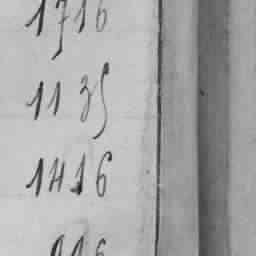 1716
1135
1416
916